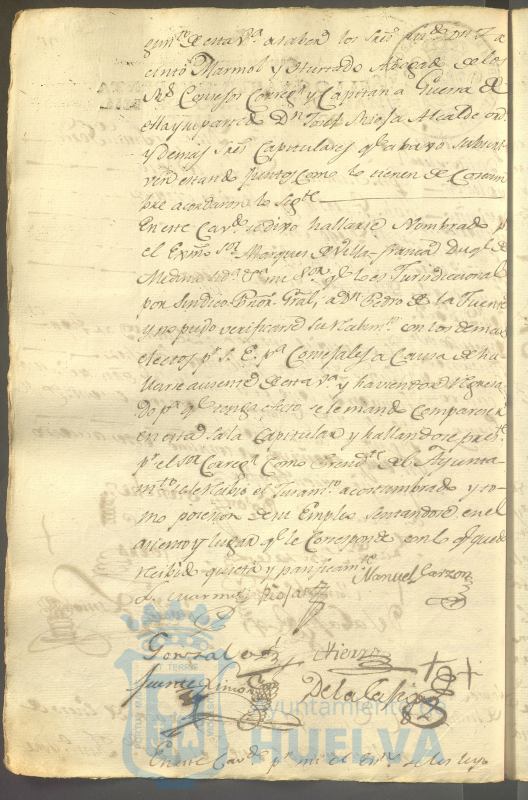 gimto de esta Va a saber los Sres Lizdo Dn Ja
cinto Marmol y Hurtado Abogado de los
Rs Consejos Corregr y Capitan a Guerra de
ella y su partdo Dn José Rioja Alcalde ordo
y demas Sres Capitulares qe abajo subscri
ven estando juntos como lo tienen de Costum
bre acordaron lo sigte
En este Cavdo se dixo hallarse Nombrado pr
el Exmo Sor Marques de Villafranca Duqe de
Medina Sida mi Sor qe lo es Jurisdiccional
por Sindico Pror Gral, a Dn Pedro de la Fuente
y no pudo verificarse su Recibimto con los demas
electos pr S. E. pa Consejales a Causa de ha
llarse ausente de esta Va y haviendo Regresa
do pa qe tenga efecto se le mandó comparecer
en esta Sala Capitular y hallandose preste
pr el Sor Corregr Como Presidte del Ayunta
mto se le recibio el Juramto acostumbrado y to
mó posesion de su Empleo sentandose en el
asiento y lugar qe le Corresponde con lo qe quedó
recibido quieta y pacificamte
Manuel Garzon
Marmol Rioja
Gonzalez Hierro
Fuente Limon De la Cassa
Ayuntamiento de
HUELVA
En este Cavdo pr mi el Esno se les leyo